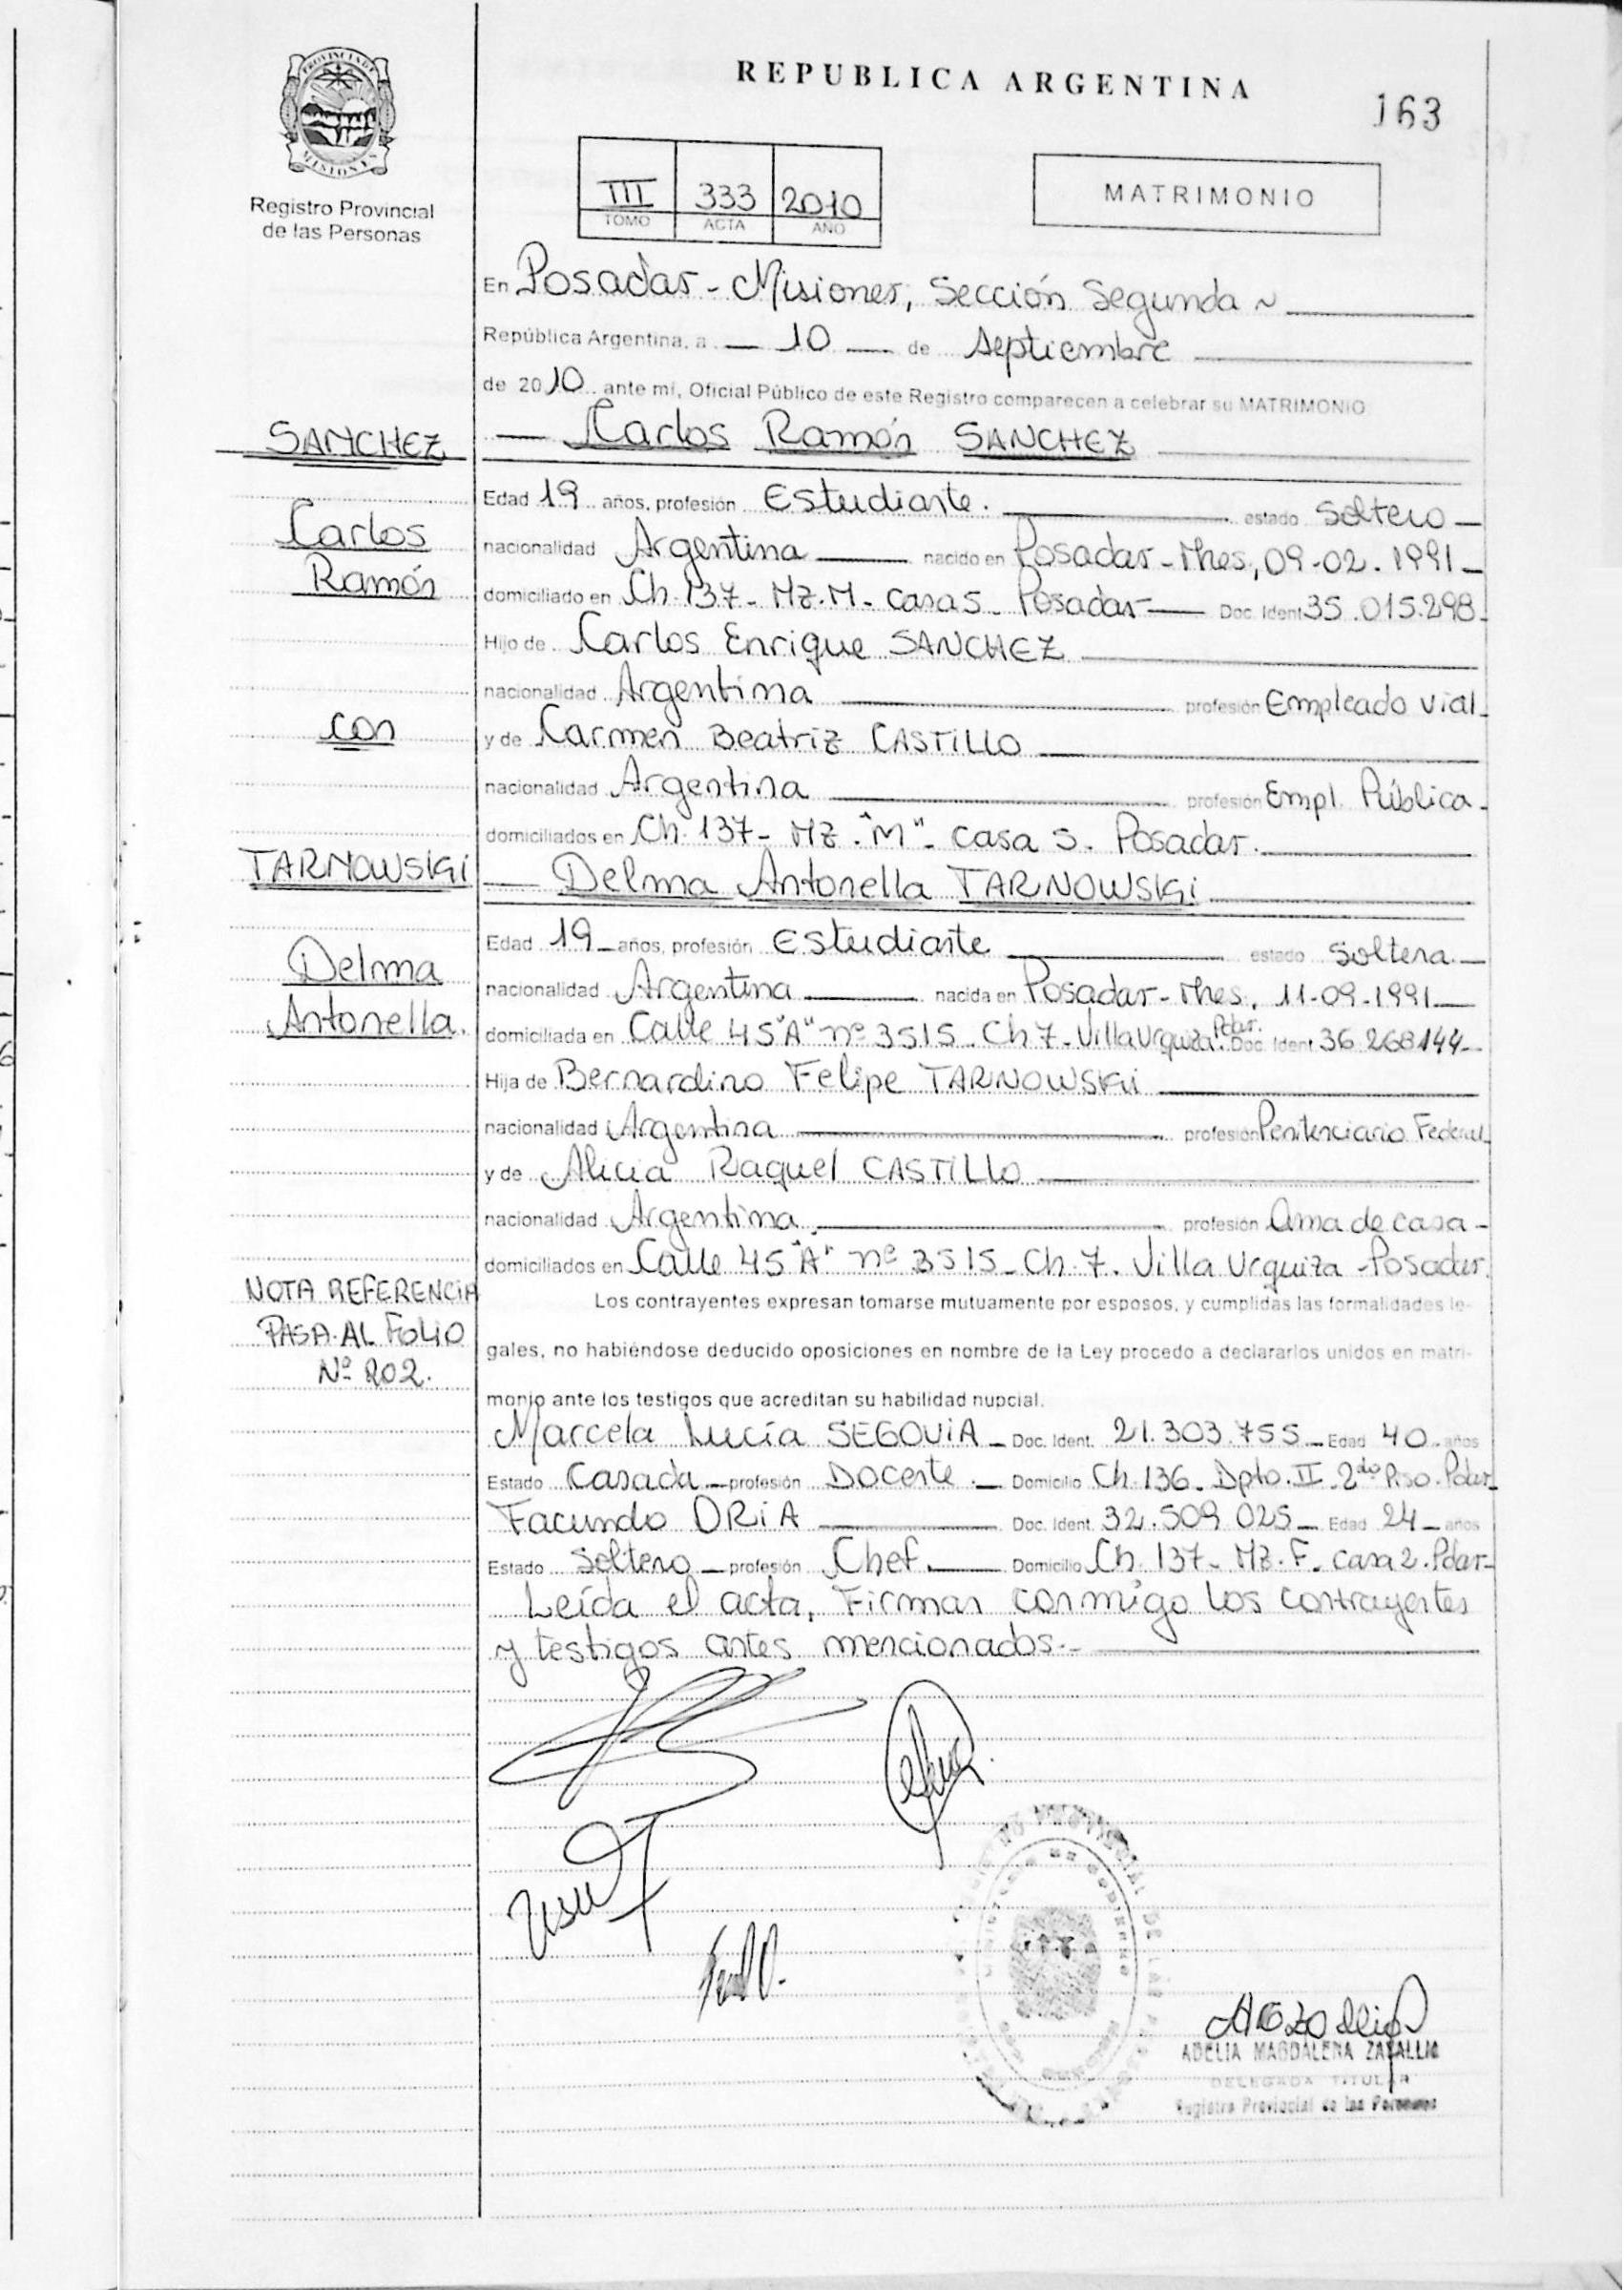 REPUBLICA ARGENTINA
163
PROVINCIA DE
MISIONES
Registro Provincial
de las Personas
III 333 2010
TOMO ACTA AÑO
MATRIMONIO
En Posadas - Misiones, Sección Segunda ~
República Argentina, a 10 de Septiembre
de 2010 ante mí, Oficial Público de este Registro comparecen a celebrar su MATRIMONIO
SANCHEZ
Carlos Ramón SANCHEZ
Edad 19 años, profesión Estudiante. estado Soltero
Carlos
nacionalidad Argentina nacido en Posadas - Mnes, 09-02-1991
Ramón
domiciliado en Ch. 137 - Mz. M - casa 5 - Posadas Doc. Ident 35.015.298
Hijo de Carlos Enrique SANCHEZ
nacionalidad Argentina profesión Empleado vial
con
y de Carmen Beatriz CASTILLO
nacionalidad Argentina profesión Empl. Pública
domiciliados en Ch. 137 - Mz. "M" - casa 5. Posadas.
TARNOWSKI
Delma Antonella TARNOWSKI
Edad 19 años, profesión Estudiante estado Soltera
Delma
nacionalidad Argentina nacida en Posadas - Mnes, 11-09-1991
Antonella
domiciliada en Calle 45 "A" nº 3515 - Ch 7 - Villa Urquiza. Pdas. Doc. Ident 36.268144
Hija de Bernardino Felipe TARNOWSKI
nacionalidad Argentina profesión Penitenciario Federal
y de Alicia Raquel CASTILLO
nacionalidad Argentina profesión Ama de casa
domiciliados en Calle 45 "A" nº 3515 - Ch. 7. Villa Urquiza - Posadas.
NOTA REFERENCIA
PASA AL FOLIO
Nº 202.
Los contrayentes expresan tomarse mutuamente por esposos, y cumplidas las formalidades le-
gales, no habiéndose deducido oposiciones en nombre de la Ley procedo a declararlos unidos en matri-
monio ante los testigos que acreditan su habilidad nupcial.
Marcela Lucía SEGOVIA Doc. Ident. 21.303.755 Edad 40 años
Estado Casada profesión Docente. Domicilio Ch. 136 - Dpto. II - 2do Piso. Pdas
Facundo ORIA Doc. Ident. 32.509.025 Edad 24 años
Estado Soltero profesión Chef. Domicilio Ch. 137 - Mz. F. casa 2. Pdas
Leída el acta, Firman conmigo los contrayentes
y testigos antes mencionados.-
ADELIA MAGDALENA
DELEGADA TITULAR
Registro Provincial de las Personas